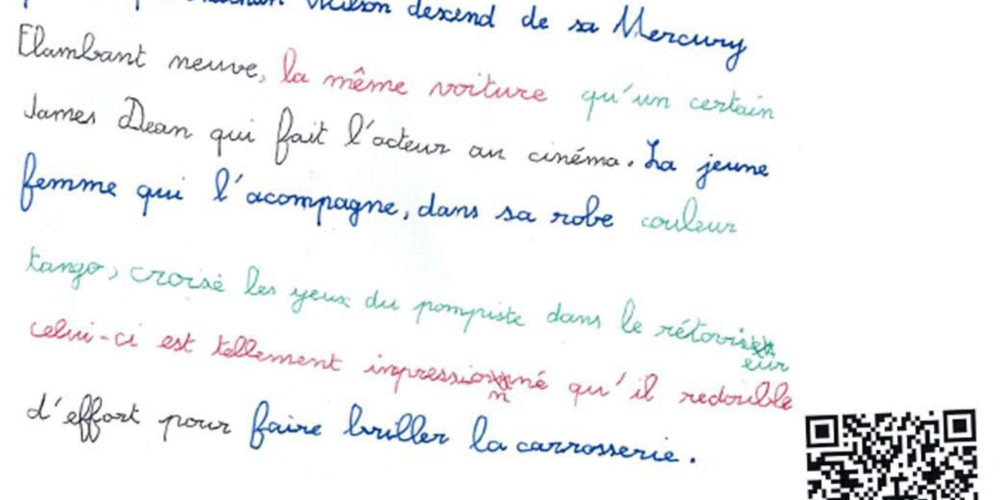 Wilson descend de sa Mercury
Flambant neuve, la même voiture qu'un certain
James Dean qui fait l'acteur au cinéma. La jeune
femme qui l'acompagne, dans sa robe couleur
tango, croisé les yeux du pompiste dans le rétoviseur
celui-ci est tellement impressionné qu'il redouble
d'effort pour faire briller la carrosserie.